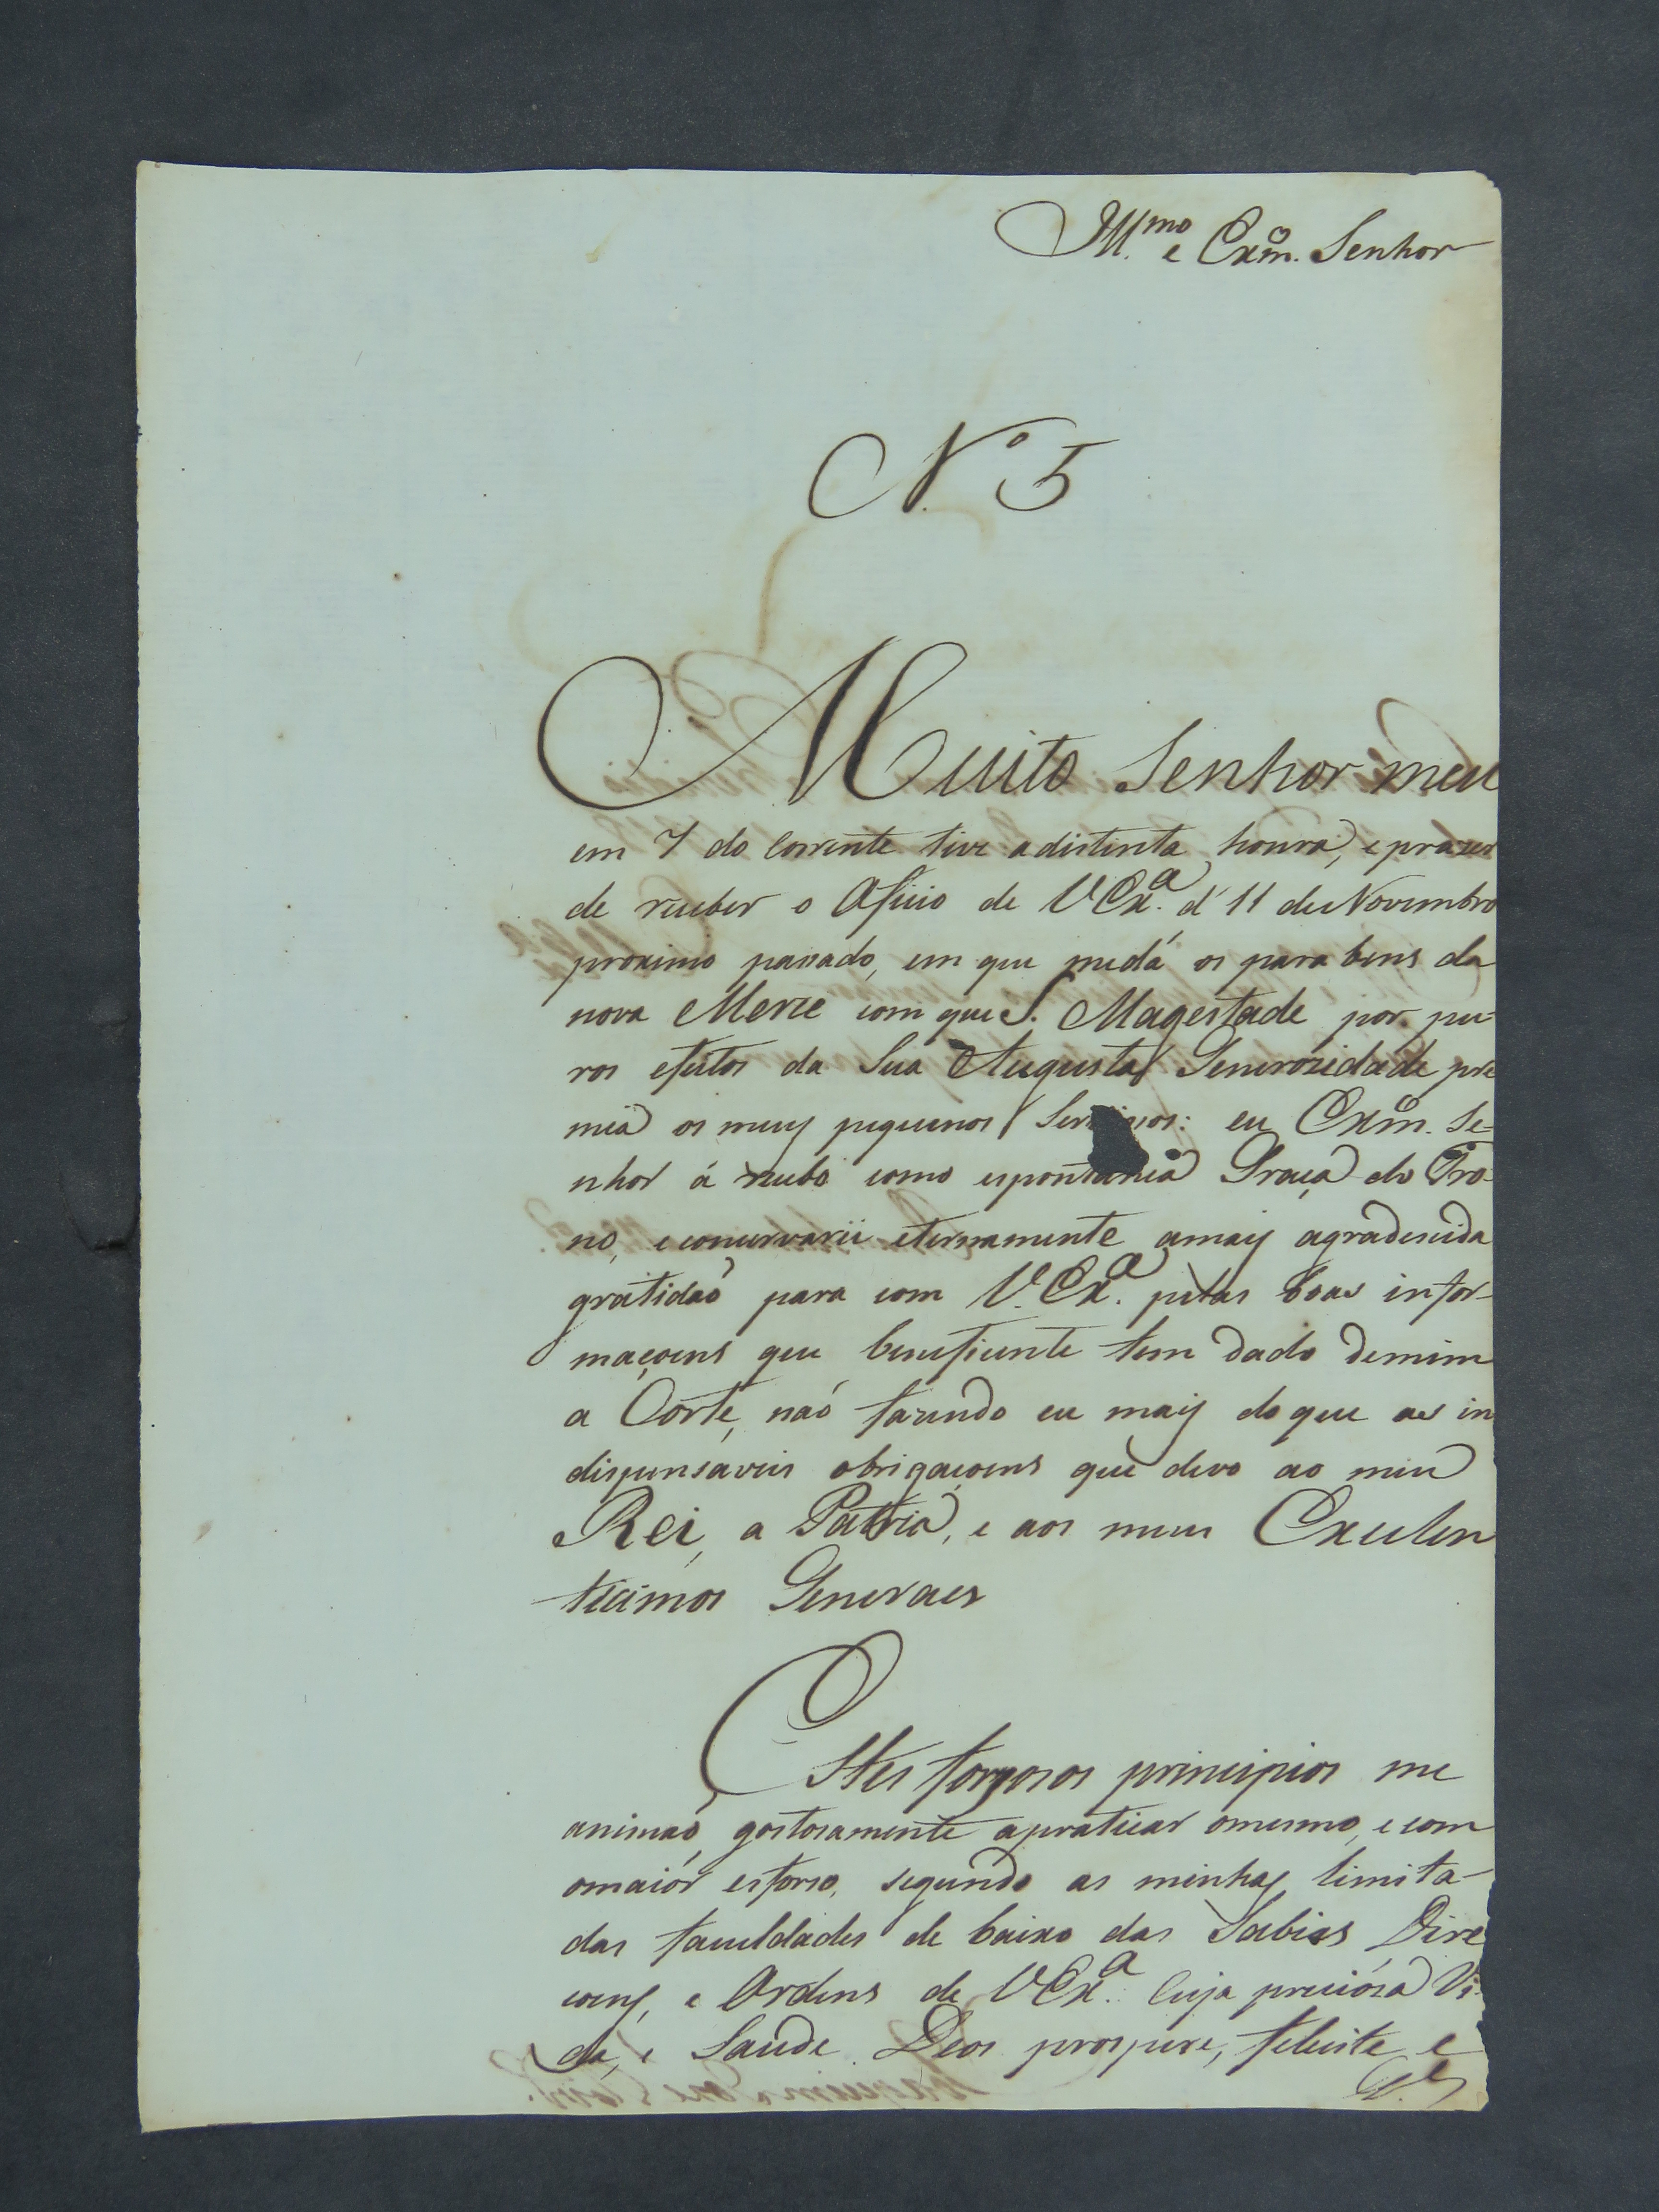 Ill.mo e Exmo. Senhor
N.º 5
Muito Senhor meu
em 7 do Corrente tive a distinta honra, e prazer
de receber o Oficio de V Ex.ª d'11 de Novembro
proximo pasado, em que me dá os para bens da
nova Merce com que S. Magestade por pu-
ros efeitos da Sua Augusta Generozidade pre
mia os meus pequenos Servicos: eu Exmo. Se-
nhor á recebo como espontania Graça do Tro-
no, e conservarei eternamente a mais agradecida
gratidaó para com V. Ex.ª pelas boas infor-
maçoens que beneficente tem dado de mim
a Corte, naó fazendo eu mais do que as in
dispensaveis obrigaçoens que devo ao meu
Rei, a Patria, e aos meus Excelen
ticimos Generaes
Estes forçosos principios me
animaó gostosamente a praticar o mesmo, e com
o maiór esforso, segundo as minhas limita-
das faculdades de baixo das Sabias Dire
coens, e Ordens de V Ex.ª Cuja preciósa Vi-
da, e Saude Deos prospere, felicite e